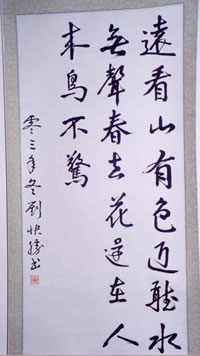 遠看山有色近聽水
無聲春去花還在人
來鳥不驚
零三年冬劉快勝書